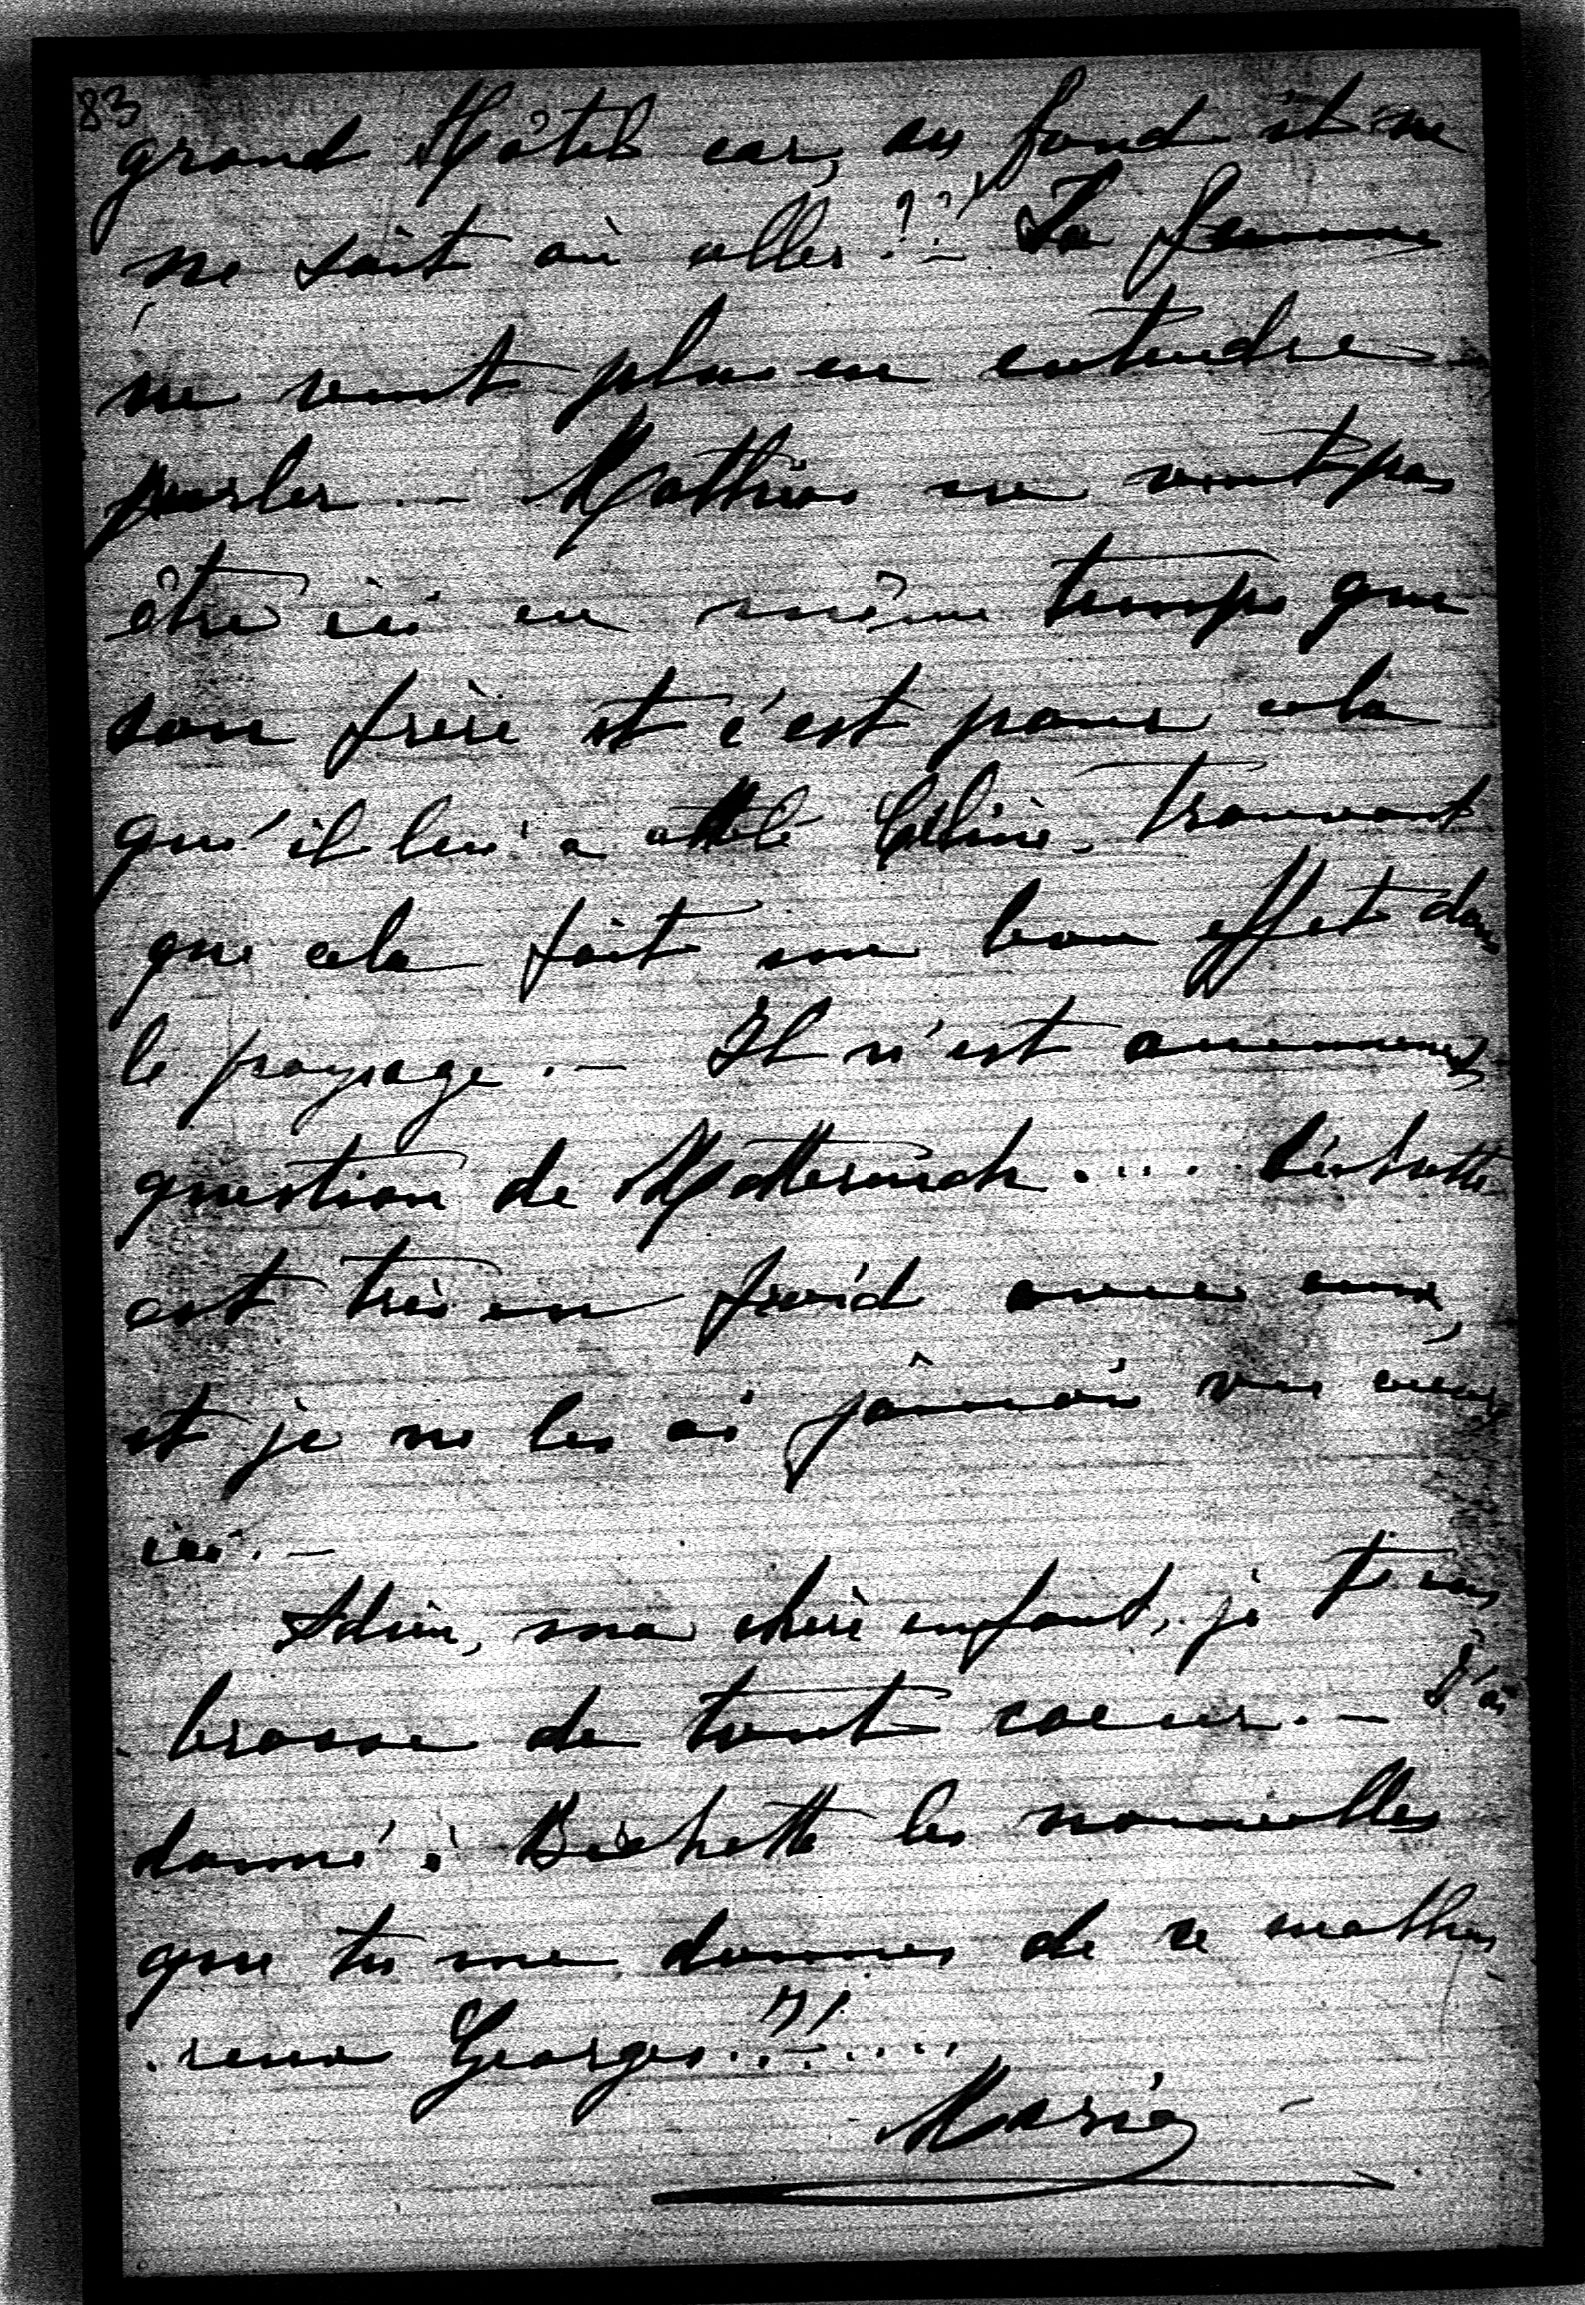 83
grand Hôtel car, au fond il ne
ne sait où aller!? — Sa femme
ne veut plus en entendre
parler. — Mathieu ne veut pas
être ici en même temps que
son frère et c'est pour cela
qu'il lui a attelé Céline, trouvant
que cela fait un bon effet dans
le paysage. — Il n'est aucunement
question de Metternich.....
est très en froid avec eux,
et je ne les ai jamais vus venir
ici. —
Adieu, ma chère enfant, je t'em
brasse de tout coeur. — J'ai
donné à Bichette les nouvelles
que tu me donnes de ce malheu-
reux Georges.......
Marie